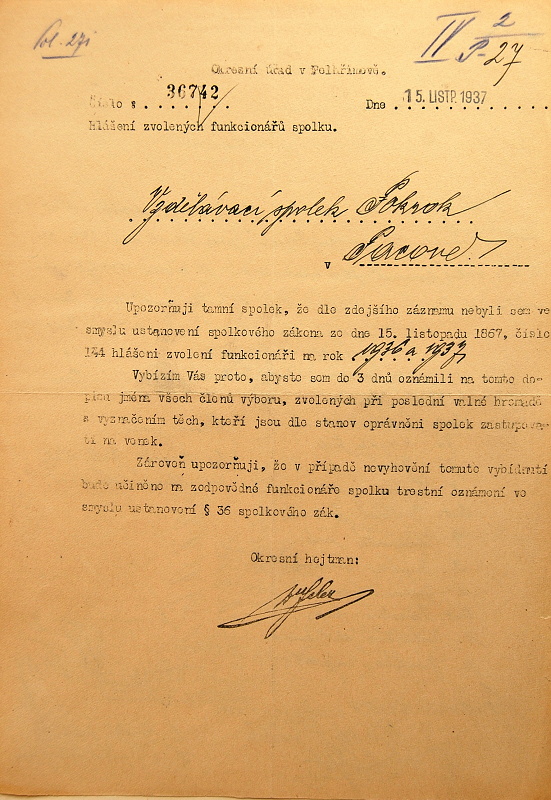 Pol. 27i
IV 2
P-27
Okresní úřad v Pelhřimově.
Číslo : 36742
Dne 15. LISTP. 1937
hlášení zvolených funkcionářů spolku.
Vzdělávací spolek Pokrok
v Pacově.
Upozorňuji tamní spolek, že dle zdejšího záznamu nebyli sem ve
smyslu ustanovení spolkového zákona ze dne 15. listopadu 1867, číslo
134 hlášeni zvolení funkcionáři na rok 1936 a 1937
Vybízím Vás proto, abyste sem do 3 dnů oznámili na tomto do-
pisu jména všech členů výboru, zvolených při poslední valné hromadě
s vyznačením těch, kteří jsou dle stanov oprávněni spolek zastupova-
ti na venek.
Zároveň upozorňuji, že v případě nevyhovění tomuto vybídnutí
bude učiněno na zodpovědné funkcionáře spolku trestní oznámení ve
smyslu ustanovení § 36 spolkového zák.
Okresní hejtman: